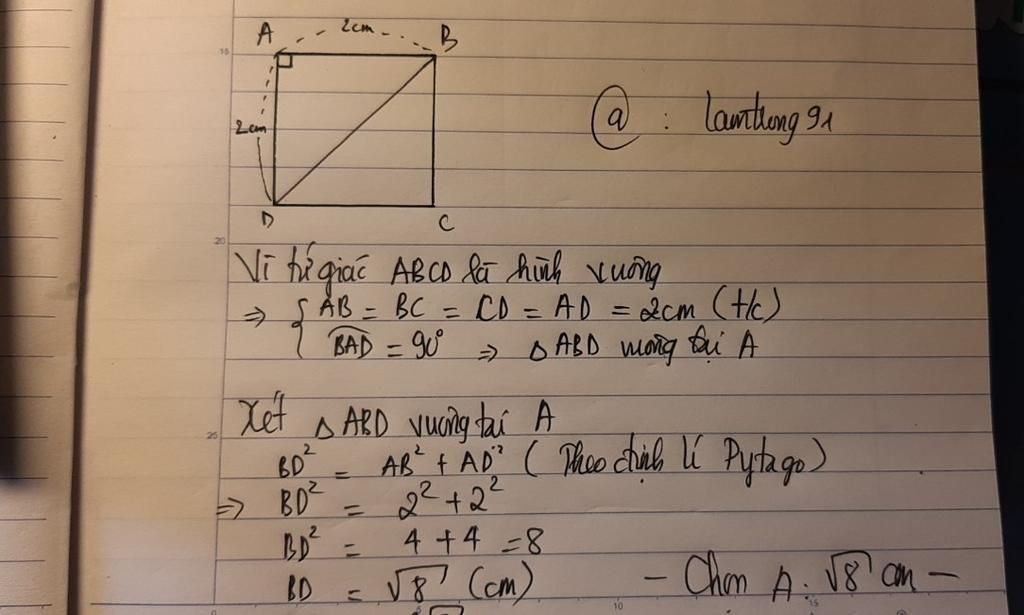 A 2cm B
2cm
@ : lamtung91
D C
Vì tứ giác ABCD là hình vuông
⇒ { AB = BC = CD = AD = 2cm (t/c)
BAD = 90° ⇒ △ ABD vuông tại A
Xét △ ABD vuông tại A
BD² = AB² + AD² (Theo định lí Pytago)
⇒ BD² = 2² + 2²
BD² = 4 + 4 = 8
BD = √8 (cm)
- Chọn A. √8 cm -
15
20
25
10
15